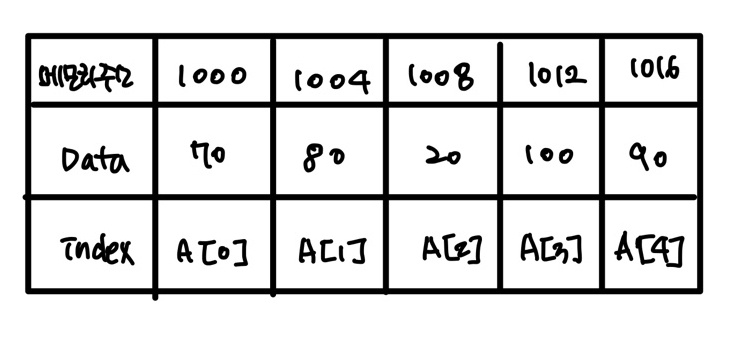 메모리주소 1000 1004 1008 1012 1016
Data 70 80 20 100 90
Index A[0] A[1] A[2] A[3] A[4]